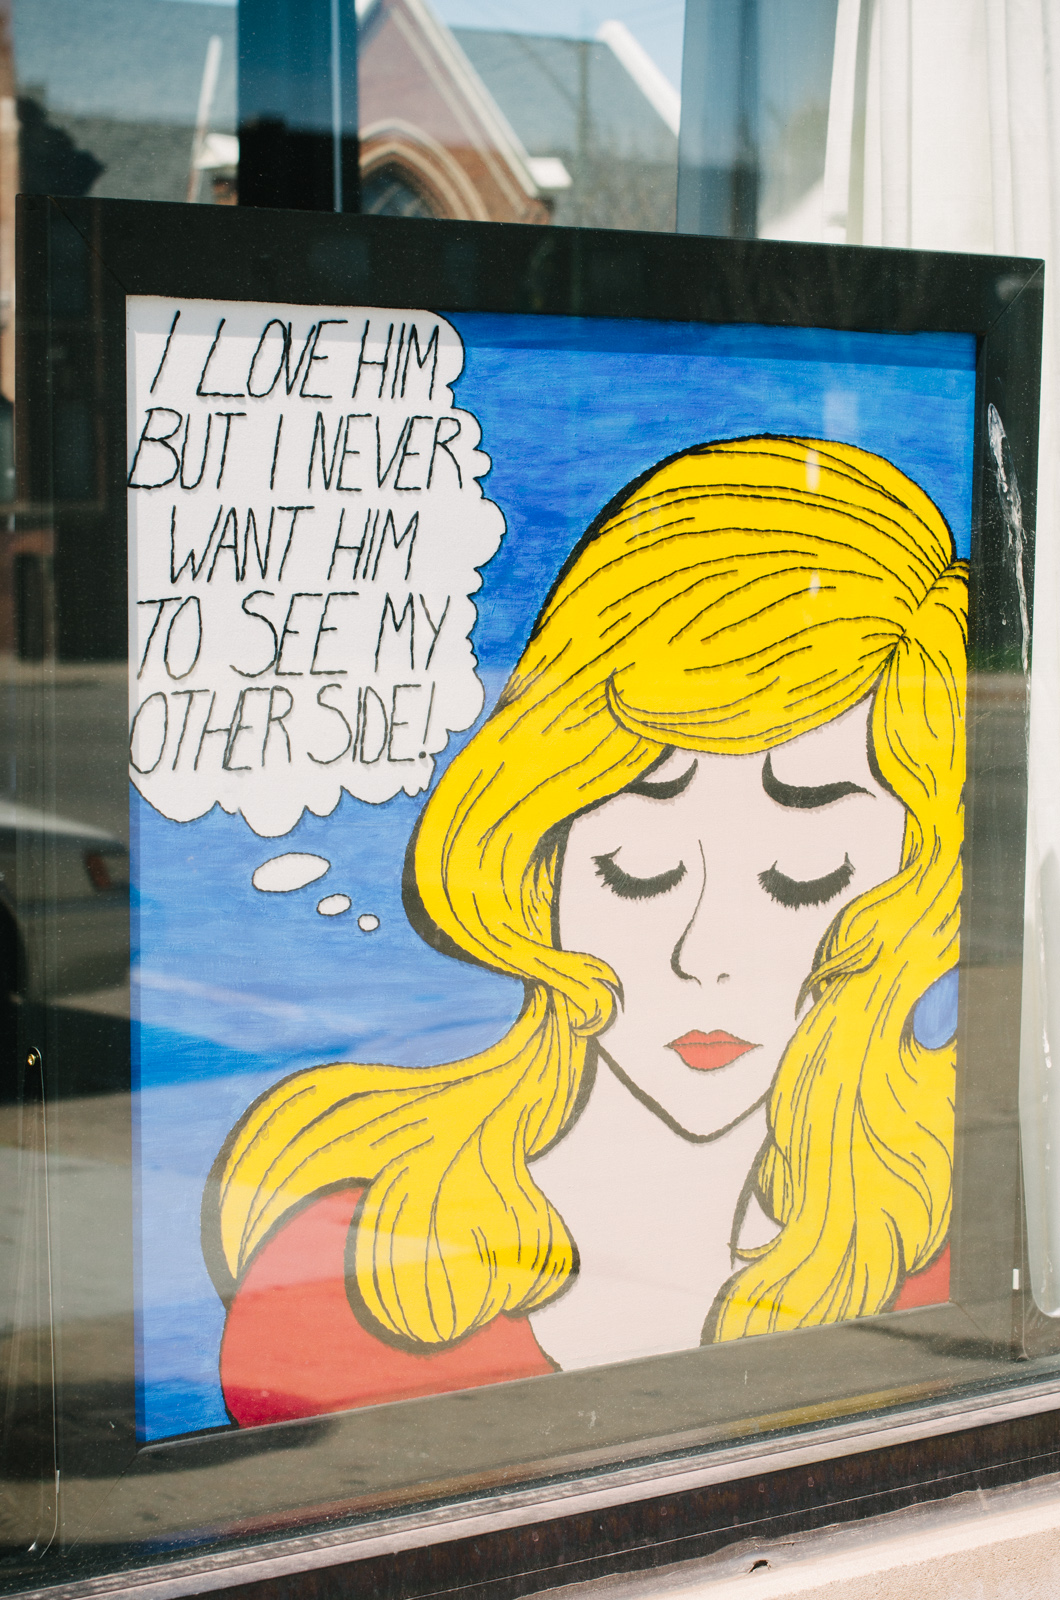 I LOVE HIM
BUT I NEVER
WANT HIM
TO SEE MY
OTHER SIDE!